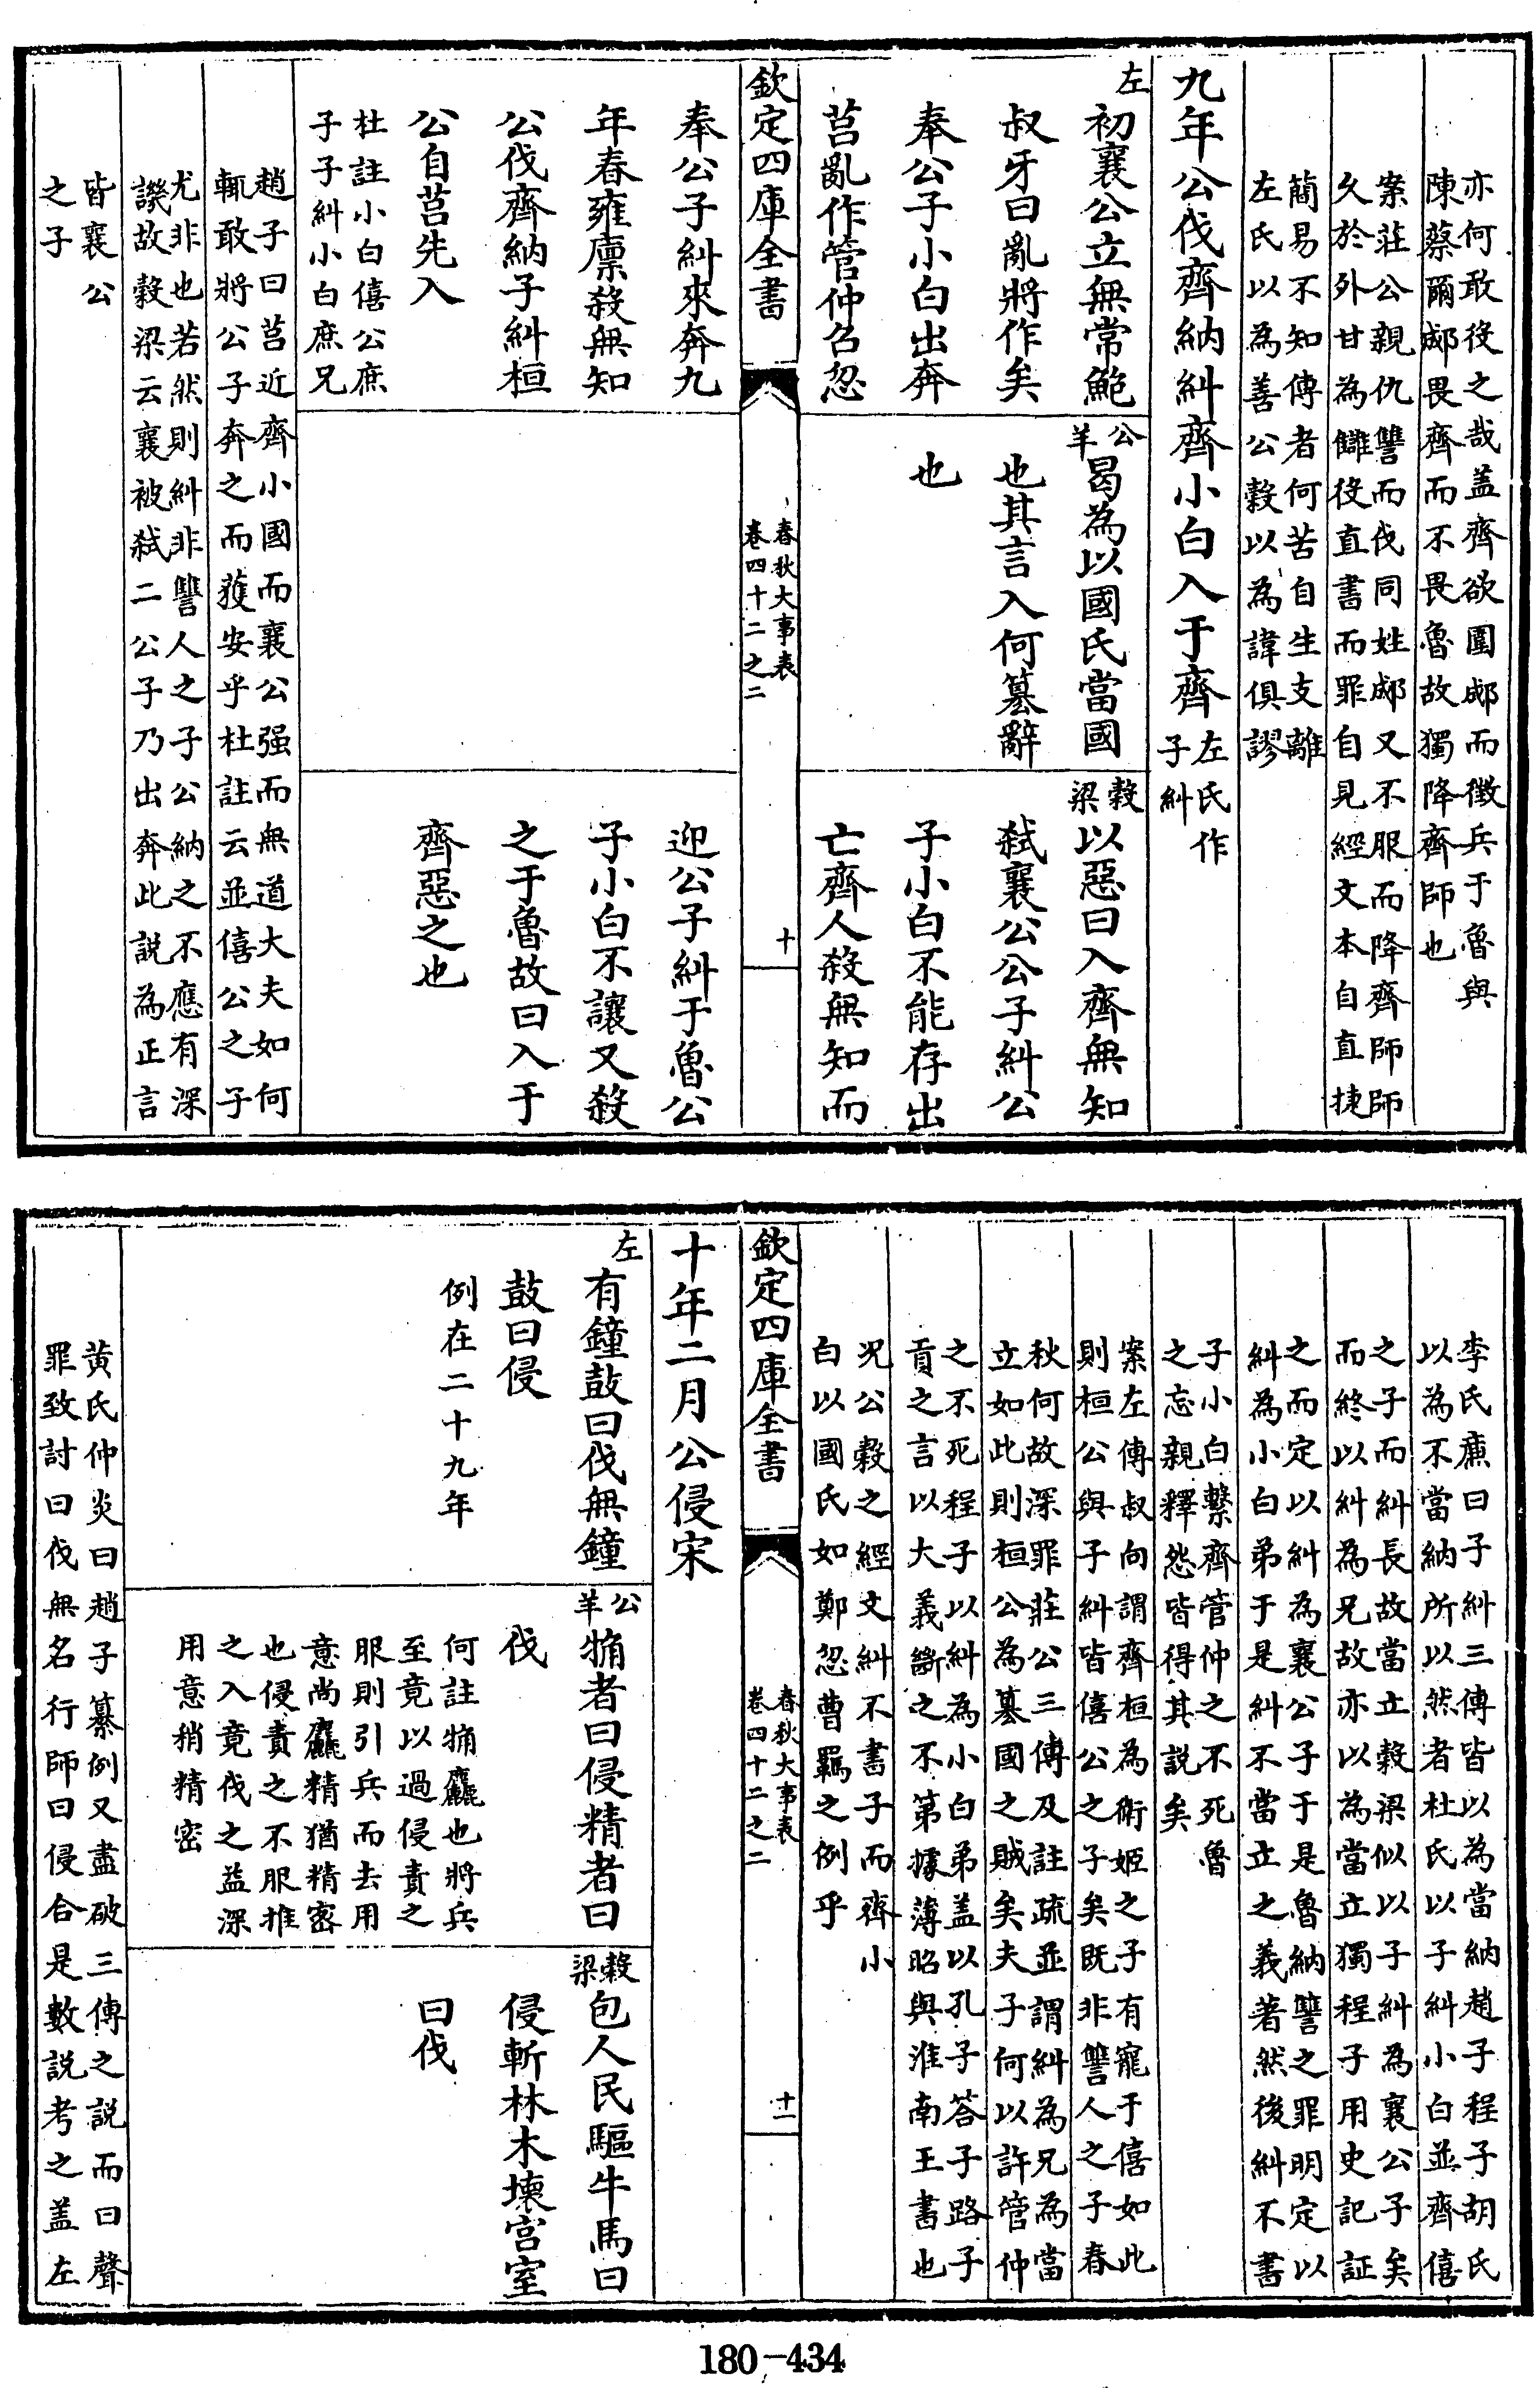 亦何敢役之哉盖齊欲圍郕而徴兵于魯與
陳蔡爾郕畏齊而不畏魯故獨降齊師也
案莊公親仇讐而伐同姓郕又不服而降齊師師
久於外甘為讎役直書而罪自見經文本自直捷
簡易不知傳者何苦自生支離
左氏以為善公穀以為諱俱謬
九年公伐齊納糾齊小白入于齊
左氏作
子糾
左
初襄公立無常鮑
叔牙曰亂將作矣
奉公子小白出奔
莒亂作管仲召忽
公羊
曷為以國氏當國
也其言入何簒辭
也
穀梁
以惡曰入齊無知
弑襄公公子糾公
子小白不能存出
亡齊人殺無知而
欽定四庫全書
春秋大事表
卷四十二之二
十
奉公子糾來奔九
年春雍廪殺無知
公伐齊納子糾桓
公自莒先入
杜註小白僖公庶
子子糾小白庶兄
迎公子糾于魯公
子小白不讓又殺
之于魯故曰入于
齊惡之也
趙子曰莒近齊小國而襄公强而無道大夫如何
輒敢將公子奔之而獲安乎杜註云並僖公之子
尤非也若然則糾非讐人之子公納之不應有深
譏故穀梁云襄被弑二公子乃出奔此説為正言
皆襄公
之子
李氏廉曰子糾三傳皆以為當納趙子程子胡氏
以為不當納所以然者杜氏以子糾小白並齊僖
之子而糾長故當立穀梁似以子糾為襄公子矣
而終以糾為兄故亦以為當立獨程子用史記証
之而定以糾為襄公子于是魯納讐之罪明定以
糾為小白弟于是糾不當立之義著然後糾不書
子小白繫齊管仲之不死魯
之忘親釋怨皆得其説矣
案左傳叔向謂齊桓為衛姬之子有寵于僖如此
則桓公與子糾皆僖公之子矣既非讐人之子春
秋何故深罪莊公三傳及註疏並謂糾為兄為當
立如此則桓公為簒國之賊矣夫子何以許管仲
之不死程子以糾為小白弟盖以孔子答子路子
貢之言以大義斷之不第據薄昭與淮南王書也
况公穀之經文糾不書子而齊小
白以國氏如鄭忽曹羈之例乎
欽定四庫全書
春秋大事表
卷四十二之二
十一
十年二月公侵宋
左
有鐘鼓曰伐無鐘
鼓曰侵
例在二十九年
公羊
觕者曰侵精者曰
伐
何註觕麤也將兵
至竟以過侵責之
服則引兵而去用
意尚麤精猶精密
也侵責之不服推
之入竟伐之益深
用意稍精密
穀梁
包人民驅牛馬曰
侵斬林木壞宫室
曰伐
黄氏仲炎曰趙子纂例又盡破三傳之説而曰聲
罪致討曰伐無名行師曰侵合是數説考之盖左
180-434